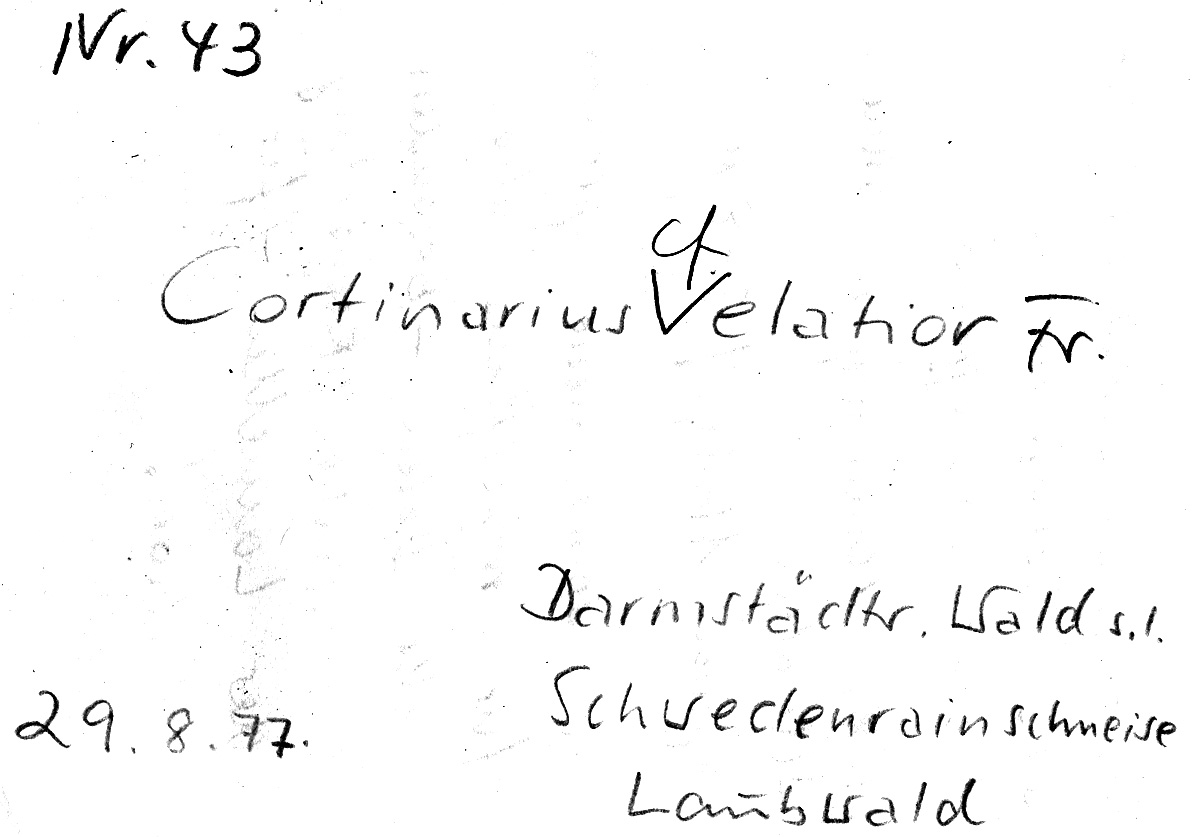 Nr. 43
cf.
Cortinarius Velatior Fr.
Darmstädtr. Wald s.l.
29.8.77. Schwedenrainschneise
Laubwald